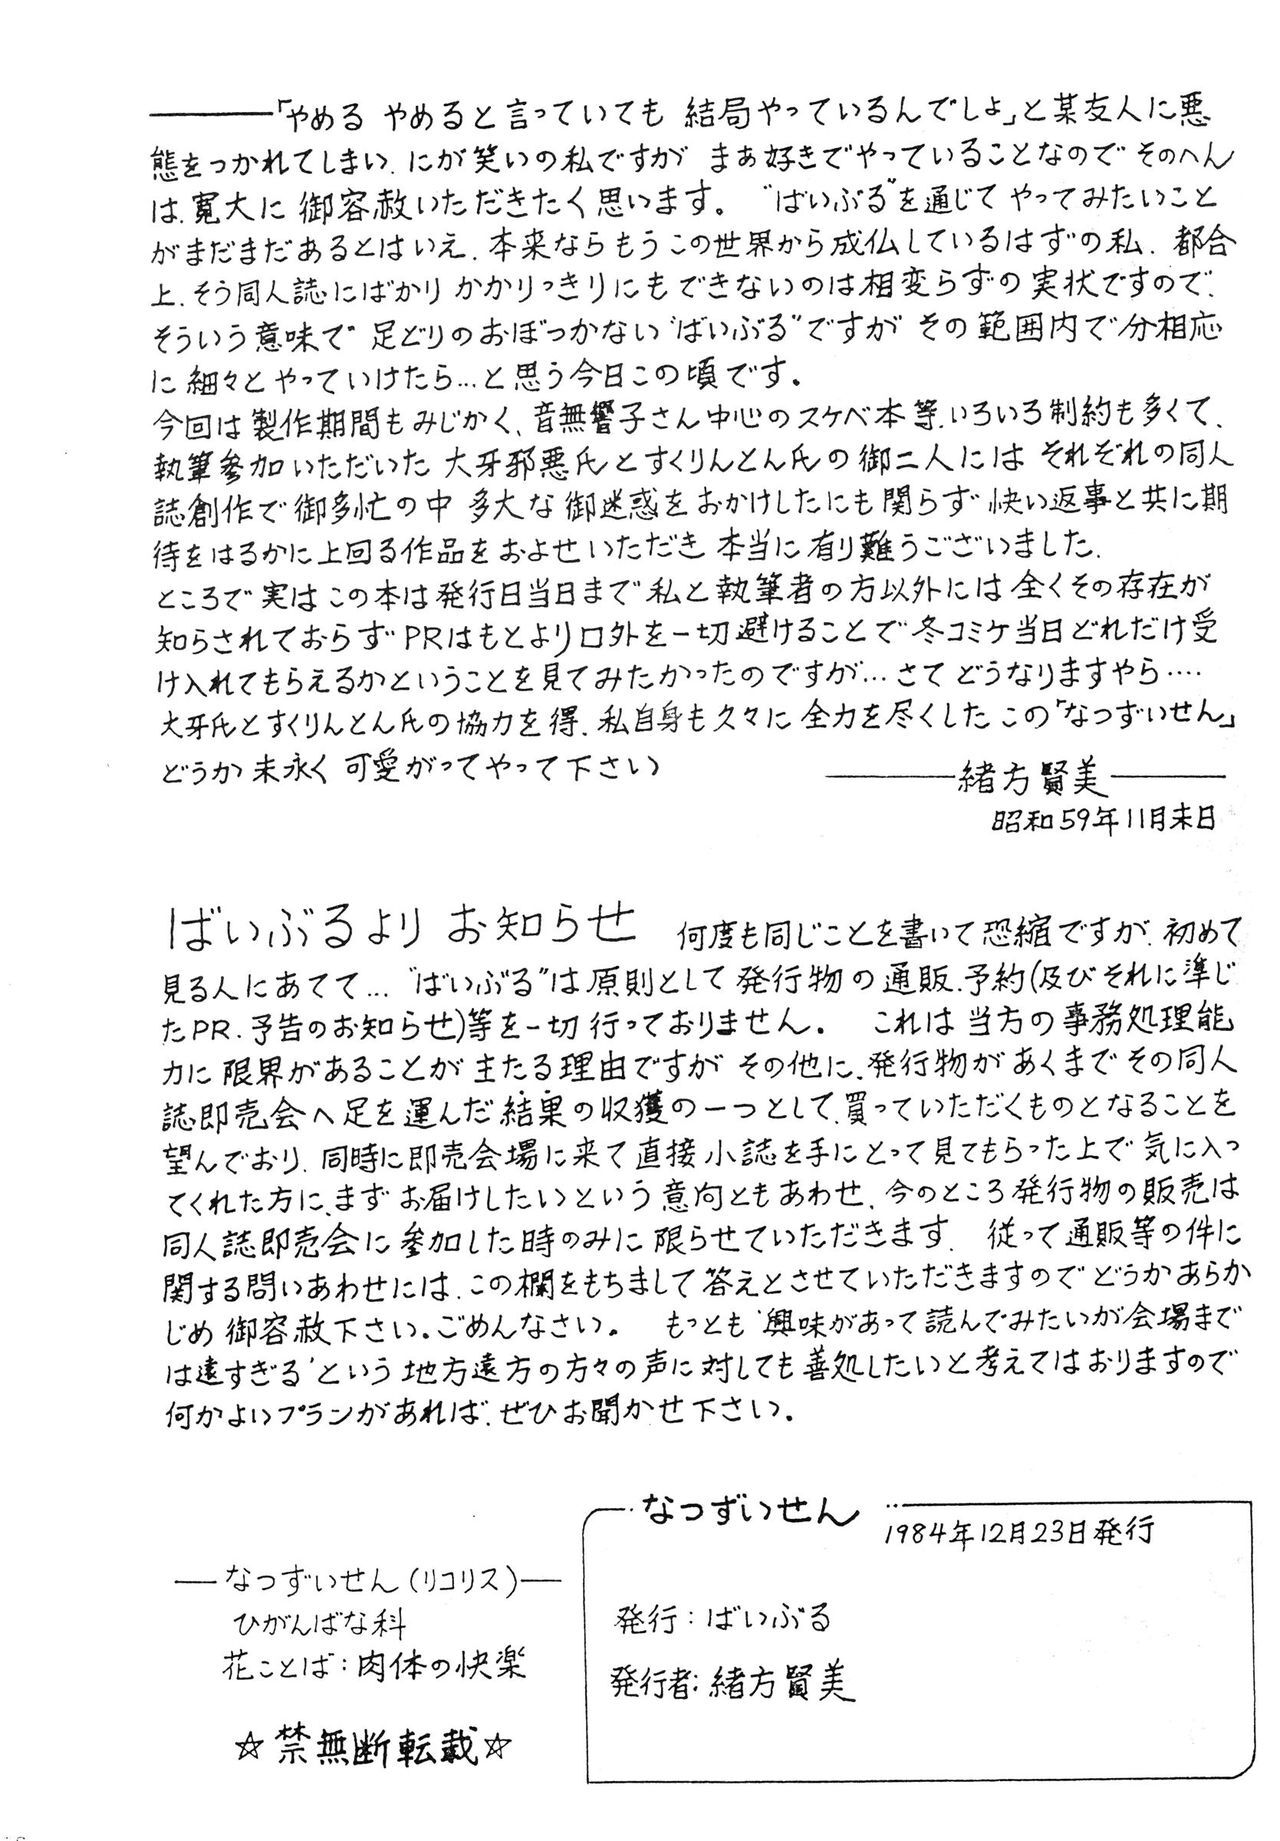 ―――「やめる やめると言っていても 結局やっているんでしょ」と某友人に悪
態をつかれてしまい、にが笑いの私ですが まぁ好きでやっていることなので そのへん
は、寛大に 御容赦いただきたく思います。 “ばいぶる”を通じて やってみたいこと
がまだまだあるとはいえ、本来ならもうこの世界から成仏しているはずの私、都合
上、そう同人誌にばかり かかりっきりにもできないのは相変らずの実状ですので、
そういう意味で 足どりのおぼつかない“ばいぶる”ですが その範囲内で分相応
に細々とやっていけたら…と思う今日この頃です。
今回は製作期間もみじかく、音無響子さん中心のスケベ本等、いろいろ制約も多くて、
執筆参加いただいた 大牙邪悪氏とすくりんとん氏の御二人には それぞれの同人
誌創作で御多忙の中 多大な御迷惑をおかけしたにも関らず 快い返事と共に期
待をはるかに上回る作品をおよせいただき 本当に有り難うございました。
ところで実はこの本は発行日当日まで私と執筆者の方以外には全くその存在が
知らされておらずPRはもとより口外を一切避けることで冬コミケ当日どれだけ受
け入れてもらえるかということを見てみたかったのですが…さてどうなりますやら‥‥
大牙氏とすくりんとん氏の協力を得、私自身も久々に全力を尽くしたこの「なつずいせん」
どうか末永く可愛がってやって下さい
―――緒方賢美―――
昭和59年11月末日
ばいぶるより お知らせ 何度も同じことを書いて恐縮ですが、初めて
見る人にあてて…“ばいぶる”は原則として発行物の通販、予約(及びそれに準じ
たPR、予告のお知らせ)等を一切行っておりません。 これは当方の事務処理能
力に限界があることが主たる理由ですが その他に、発行物があくまでその同人
誌即売会へ足を運んだ結果の収獲の一つとして、買っていただくものとなることを
望んでおり、同時に即売会場に来て直接小誌を手にとって見てもらった上で気に入っ
てくれた方に、まずお届けしたいという意向ともあわせ、今のところ発行物の販売は
同人誌即売会に参加した時のみに限らせていただきます。 従って通販等の件に
関する問いあわせには、この欄をもちまして答えとさせていただきますのでどうかあらか
じめ御容赦下さい。ごめんなさい。 もっとも‘興味があって読んでみたいが会場まで
は遠すぎる’という地方遠方の方々の声に対しても善処したいと考えてはおりますので
何かよいプランがあれば、ぜひお聞かせ下さい。
―なつずいせん(リコリス)―
ひがんばな科
花ことば：肉体の快楽
☆禁無断転載☆
なつずいせん
1984年12月23日発行
発行：ばいぶる
発行者：緒方賢美